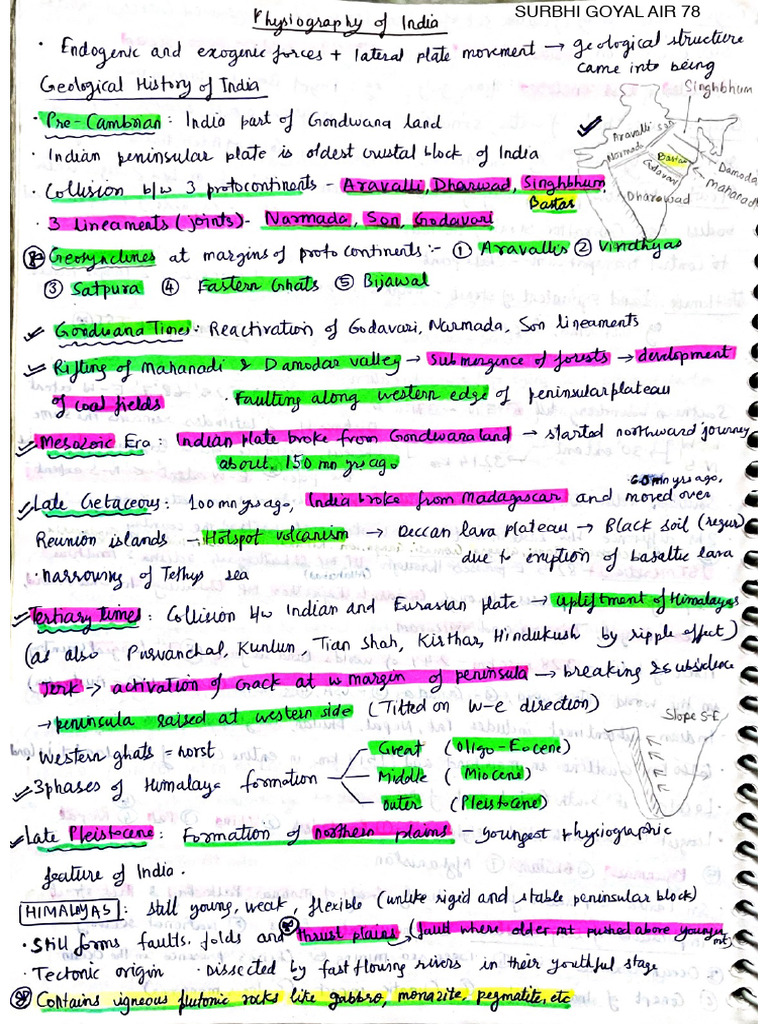 SURBHI GOYAL AIR 78
Physiography of India
· Endogenic and exogenic forces + lateral plate movement → geological structure
came into being
Geological History of India
Singhbhum
Aravalli
Son
Narmada
Bastar
Godavari
Dharwad
Damodar
Mahanadi
· Pre-Cambrian : India part of Gondwana land
· Indian peninsular plate is oldest crustal block of India
· Collision b/w 3 protocontinents - Aravalli, Dharwad, Singhbhum,
Bastar
· 3 lineaments (joints) - Narmada, Son, Godavari
Geosynclines at margins of proto continents :- ① Aravallis ② Vindhyas
③ Satpura ④ Eastern Ghats ⑤ Bijawal
✓ Gondwana Times : Reactivation of Godavari, Narmada, Son lineaments
✓ Rifting of Mahanadi & Damodar valley → submergence of forests → development
of coal fields · Faulting along western edge of peninsular plateau
✓ Mesozoic Era : Indian plate broke from Gondwana land → started northward journey
about 150 mn yrs ago
60 mn yrs ago,
✓ Late Cretaceous : 100 mn yrs ago, India broke from Madagascar and moved over
Reunion islands → Hotspot volcanism → Deccan lava plateau → Black soil (regur)
due to eruption of basaltic lava
· narrowing of Tethys sea
✓ Tertiary times : Collision b/w Indian and Eurasian plate → upliftment of Himalayas
(as also Purvanchal, Kunlun, Tian Shah, Kirthar, Hindukush by ripple effect)
Jerk → activation of crack at w margin of peninsula → breaking & subsidence
→ peninsula raised at western side (Tilted on W-E direction)
Slope S-E
Western ghats = horst
✓ 3 phases of Himalaya formation
Great (Oligo-Eocene)
Middle (Miocene)
Outer (Pleistocene)
✓ Late Pleistocene : Formation of northern plains - youngest physiographic
feature of India.
HIMALAYAS : still young, weak, flexible (unlike rigid and stable peninsular block)
· Still forms faults, folds and thrust plains → (fault where older mt pushed above younger mt)
· Tectonic origin · Dissected by fast flowing rivers in their youthful stage
Contains igneous plutonic rocks like gabbro, monazite, pegmatite, etc